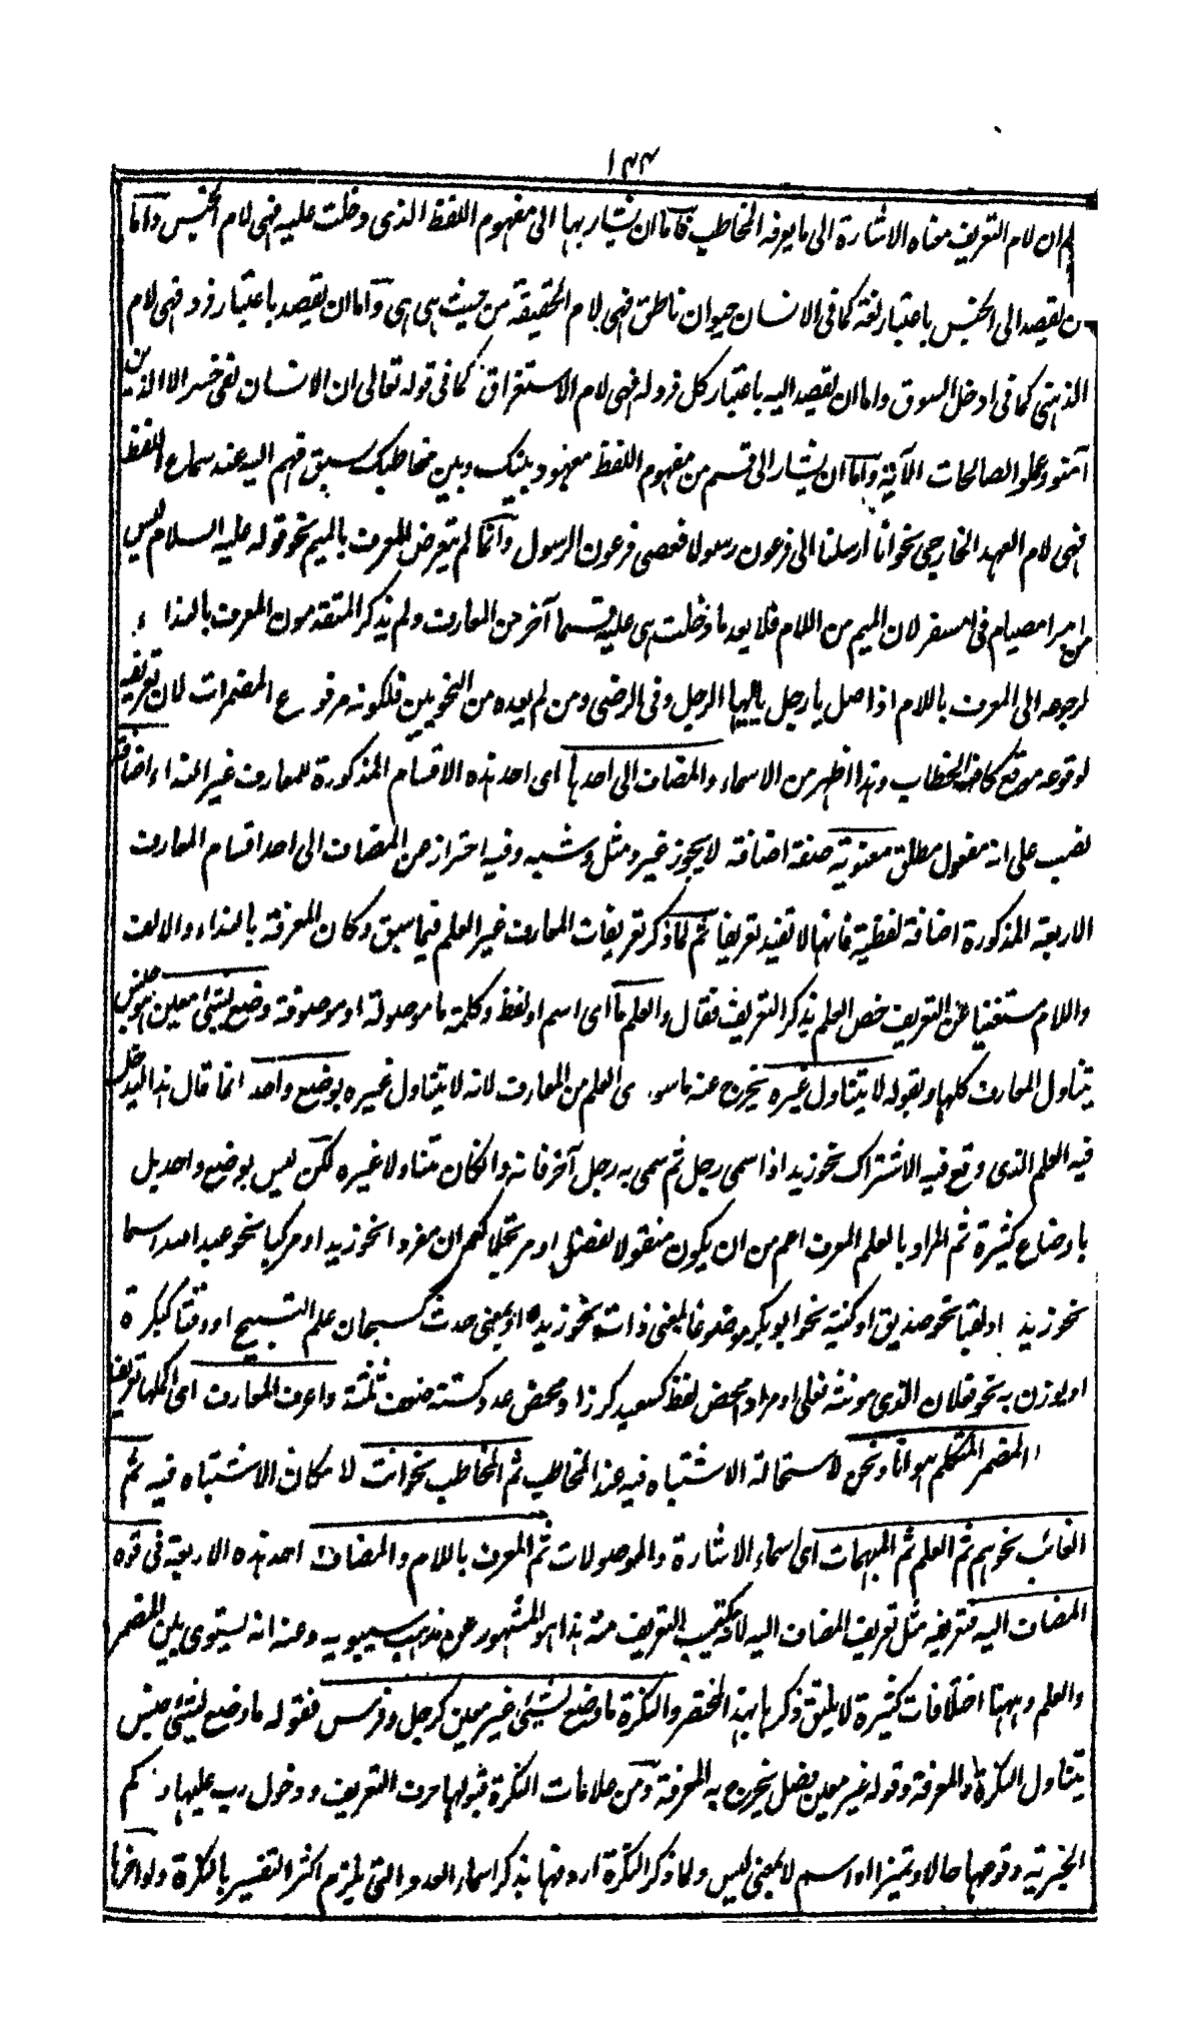 ١٤٤
ان لام التعريف معناه الاشارة الى ما يعرفه المخاطب فاما ان يشار بها الى مفهوم اللفظ الذى دخلت عليه فهى لام الجنس واما
ن يقصد الى الجنس باعتبار نفسه كما فى الانسان حيوان ناطق فهى لام الحقيقة من حيث هى هى واما ان يقصد باعتبار فرد فهى لام
الذهنى كما فى ادخل السوق واما ان يقصد اليه باعتبار كل فرد له فهى لام الاستغراق كما فى قوله تعالى ان الانسان لفى خسر الا الذين
آمنوا وعملوا الصالحات الآية واما ان يشار الى قسم من مفهوم اللفظ معهود بينك وبين مخاطبك سبق فهم اليه عند سماع اللفظ
فهى لام العهد الخارجى نحو انا ارسلنا الى فرعون رسولا فعصى فرعون الرسول وانما لم يتعرض للمعرف بالميم نحو قوله عليه السلام ليس
من امبر امصيام فى امسفر لان الميم من اللام فلا يعد ما دخلت هى عليه قسما آخر من المعارف ولم يذكر المتقدمون المعرف بالنداء
لرجوعه الى المعرف باللام اذ اصل يا رجل يا ايها الرجل وفى الرضى ومن لم يعده من النحويين فلكونه فرع المضمرات لان تعريفه
لوقوعه موقع كاف الخطاب وهذا اظهر من الاسماء والمضاف الى احدها اى احد هذه الاقسام المذكورة للمعارف غير النداء اضافة
نصب على انه مفعول مطلق معنوية صفة اضافة لا يجوز غير ومثل وشبه وفيه احتراز عن المضاف الى احد اقسام المعارف
الاربعة المذكورة اضافة لفظية فانها لا تفيد تعريفا ثم لما ذكر تعريفات المعارف غير العلم فيما سبق وكان المعرفة بالنداء والالف
واللام مستغنيا عن التعريف خص العلم بذكر التعريف فقال والعلم ما اى اسم او لفظ وكلمة ما موصولة او موصوفة وضع لشئ معين هو جنس
يتناول المعارف كلها وبقوله لا يتناول غيره يخرج عنه ما سوى العلم من المعارف لانه لا يتناول غيره بوضع واحد انما قال هذا ليدخل
فيه العلم الذى وقع فيه الاشتراك نحو زيد اذا سمى رجل ثم سمى به رجل آخر فانه وان كان متناولا غيره لكن ليس بوضع واحد بل
باوضاع كثيرة ثم المراد بالعلم المعرف اعم من ان يكون منقولا كفضل او مرتجلا كعمران مفردا نحو زيد او مركبا نحو عبد الله اسما
نحو زيد او لقبا نحو صديق او كنية نحو ابو بكر موضوعا لمعنى ذات نحو زيد او بمعنى حدث كسبحان علم التسبيح او وقتا كبكرة
او يوزن به نحو فلان الذى مونثه فعلى او مرادا محض لفظ كسعيد كرز او محض عدد كستة ضعف ثلثة واعرف المعارف اى اكملها تعريفا
المضمر المتكلم هو انا ونحن لاستحالة الاشتباه فيه عند المخاطب ثم المخاطب نحو انت لامكان الاشتباه فيه ثم
الغائب نحو هم ثم العلم ثم المبهمات اى اسماء الاشارة والموصولات ثم المعرف باللام والمضاف احد هذه الاربعة فى قوة
المضاف اليه فتعريفه مثل تعريف المضاف اليه لانه يكتسب التعريف منه هذا هو المشهور عن مذهب سيبويه وعنه انه يستوى بين المضمر
والعلم وههنا اختلافات كثيرة لا يليق ذكرها بهذا المختصر والنكرة ما وضع لشئ غير معين كرجل وفرس فقوله ما وضع لشئ جنس
يتناول النكرة والمعرفة وقوله غير معين فصل يخرج به المعرفة ومن علامات النكرة قبولها حرف التعريف ودخول رب عليها و كم
الخبرية وقوعها حالا وتميزا او اسم لا بمعنى ليس ولما ذكر النكرة اردفها بذكر اسماء العدد التى يلزم اكثر التفسير بالنكرة ولو اخرها